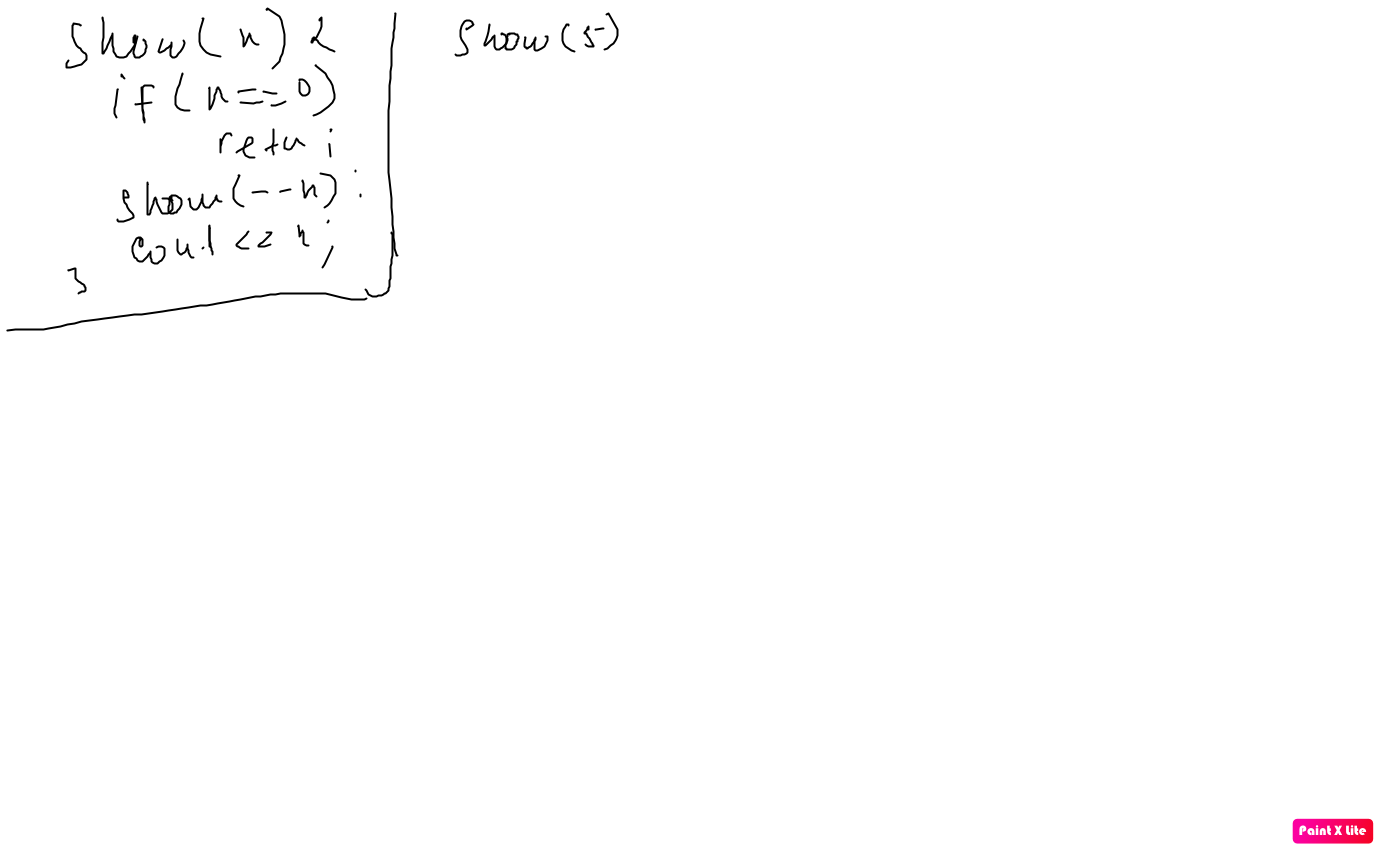 show(n) {
if(n==0)
retu;
show(--n);
cout << n;
}
show(5)
Paint X Lite